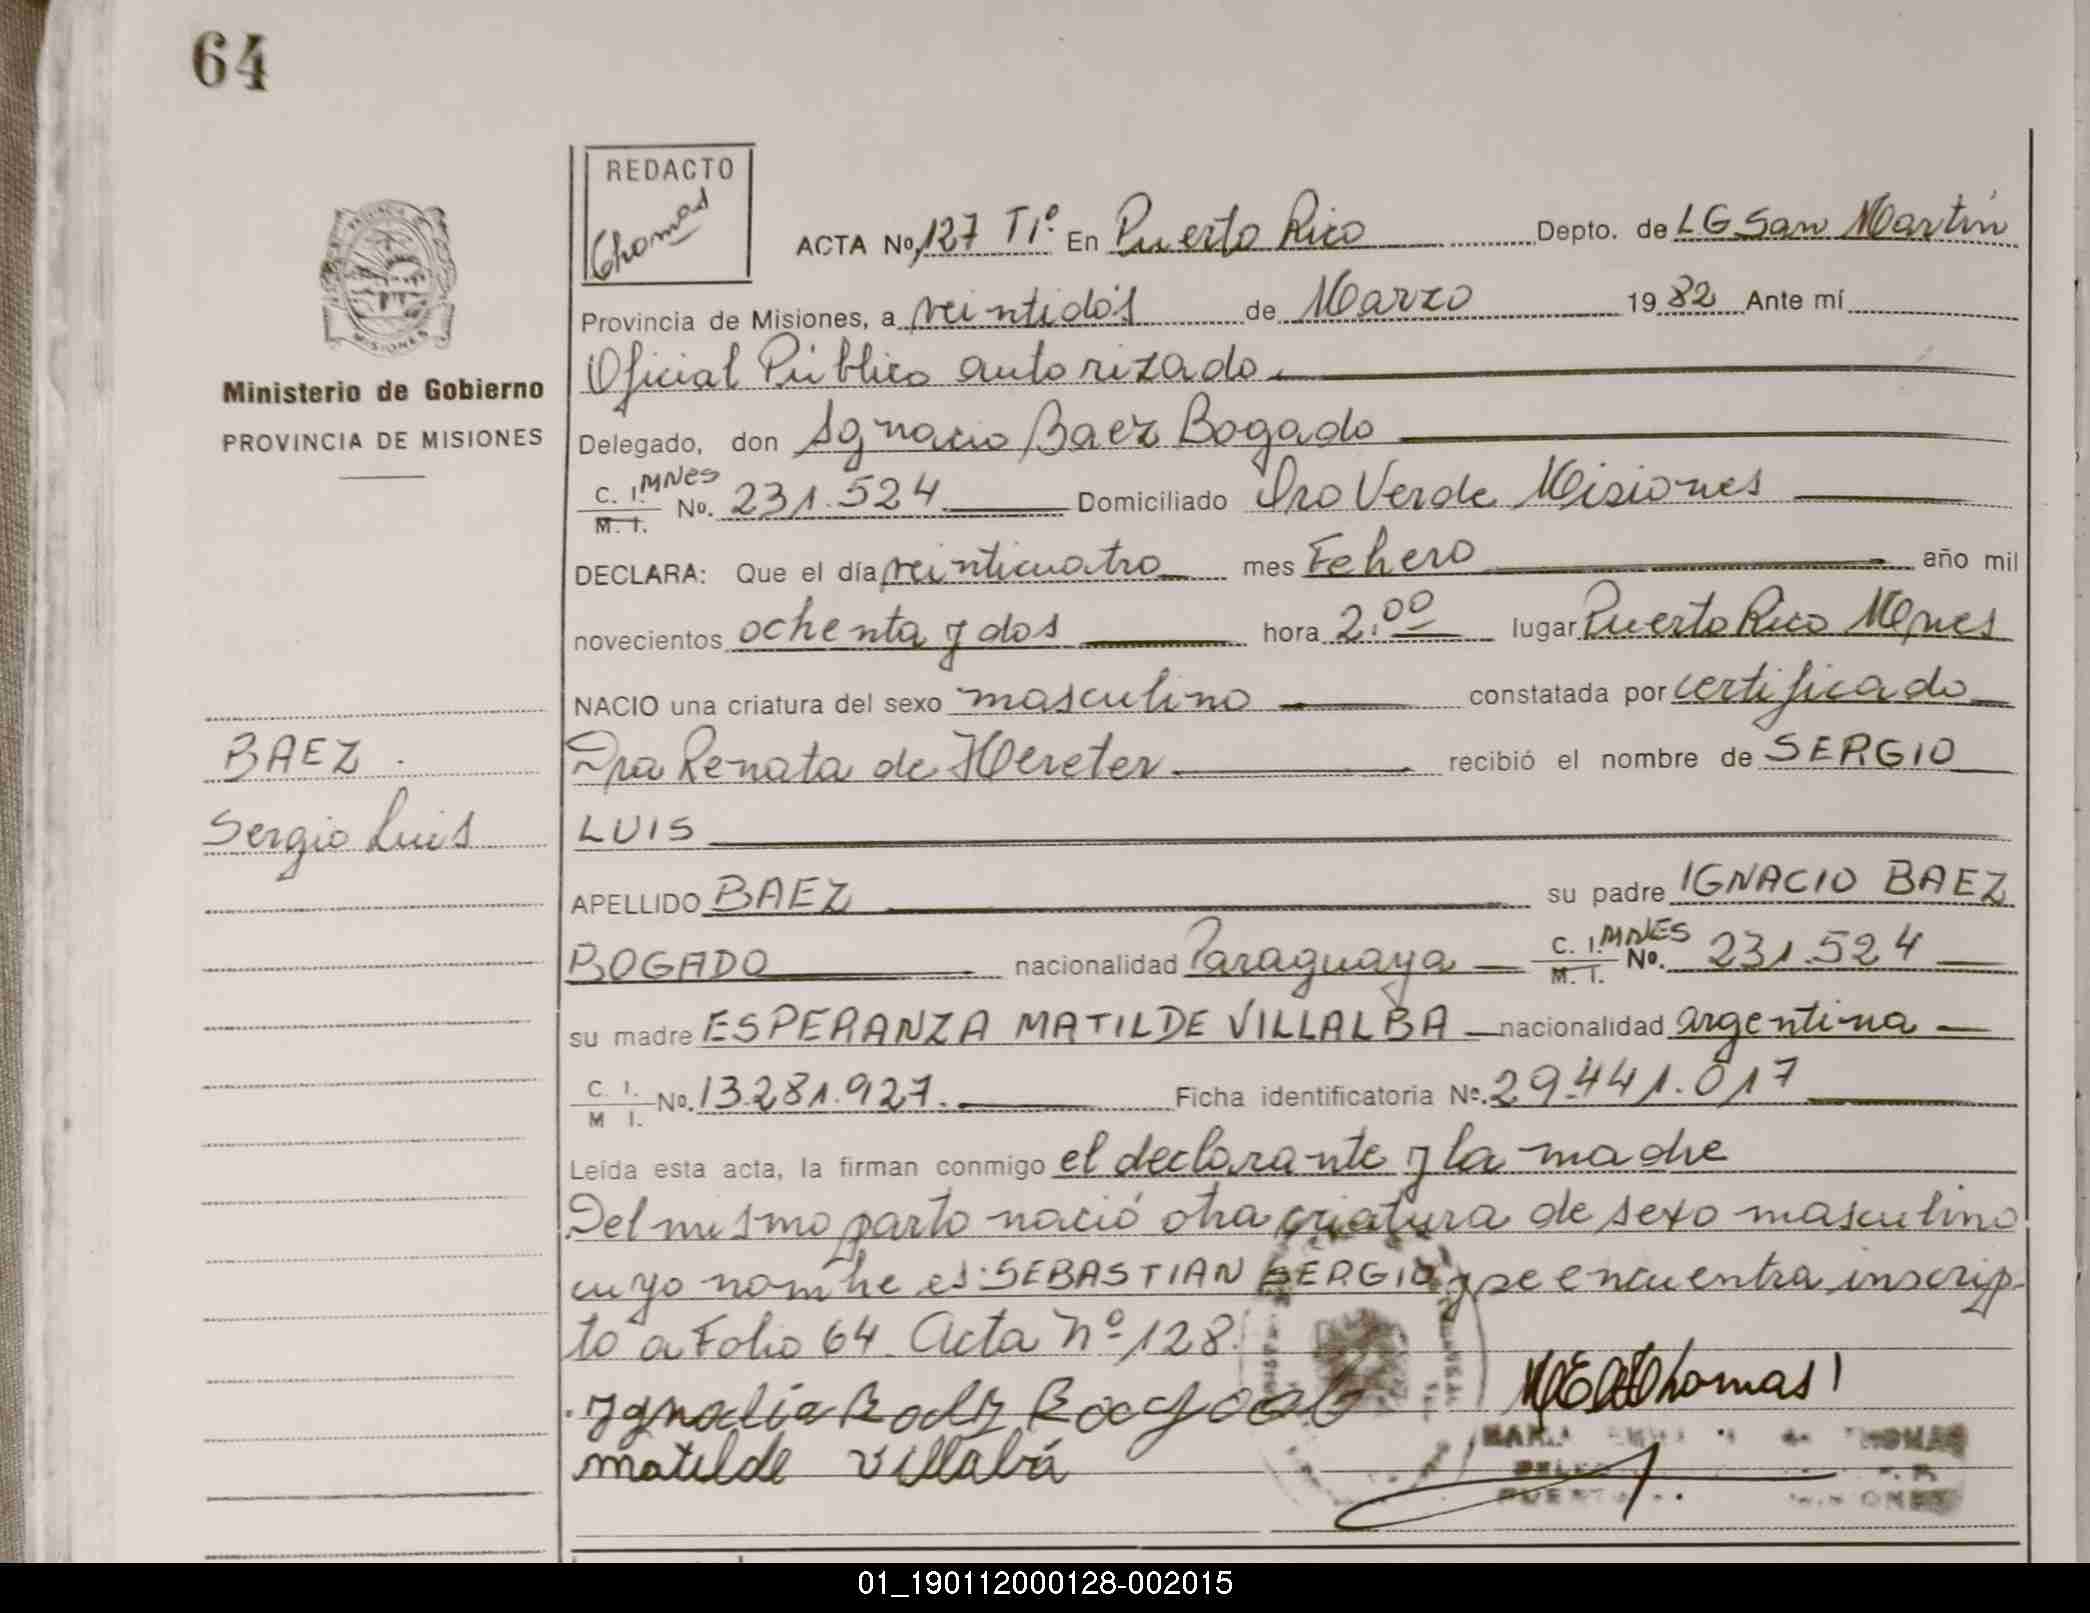 64
REDACTO
Thomas
ACTA No. 127 T1º En Puerto Rico Depto. de LG San Martín
Provincia de Misiones, a veintidós de Marzo 1982 Ante mí
Oficial Público autorizado
Ministerio de Gobierno
PROVINCIA DE MISIONES
Delegado, don Ignacio Baez Bogado
C. I. MNES
M. I. No. 231.524 Domiciliado Oro Verde Misiones
DECLARA: Que el día veinticuatro mes Febrero año mil
novecientos ochenta y dos hora 2.00 lugar Puerto Rico Mnes
NACIO una criatura del sexo masculino constatada por certificado
Dra Renata de Hereter recibió el nombre de SERGIO
LUIS
BAEZ.
Sergio Luis
APELLIDO BAEZ su padre IGNACIO BAEZ
BOGADO nacionalidad Paraguaya C. I. MNES M. I. No. 231.524
su madre ESPERANZA MATILDE VILLALBA nacionalidad argentina
C. I. M I. No. 13.281.927. Ficha identificatoria Nº. 29.441.017
Leída esta acta, la firman conmigo el declarante y la madre
Del mismo parto nació otra criatura de sexo masculino
cuyo nombre es: SEBASTIAN SERGIO y se encuentra inscrip-
to a Folio 64 Acta Nº 128.
Ignacio Baez Bogado
Matilde Villalba
Thomas
MARIA THOMAS
01_190112000128-002015